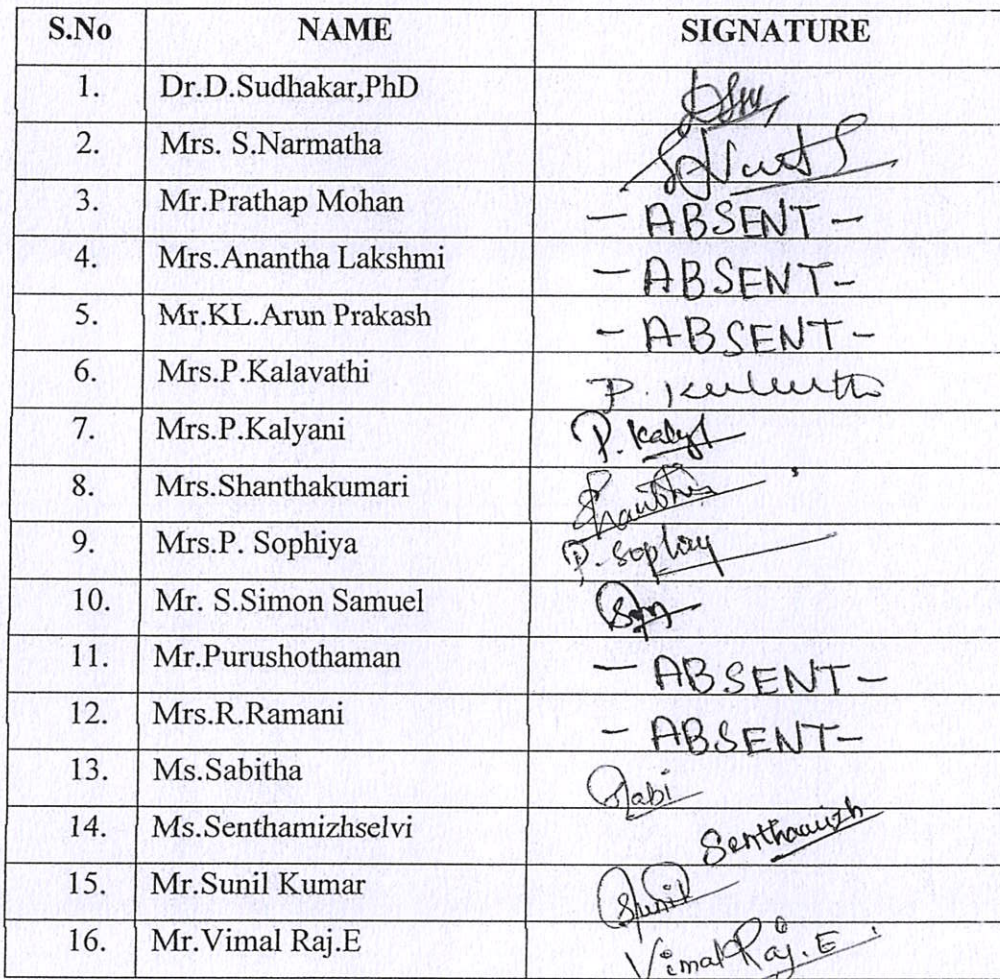 S.No NAME SIGNATURE
1. Dr.D.Sudhakar,PhD
2. Mrs. S.Narmatha
3. Mr.Prathap Mohan - ABSENT -
4. Mrs.Anantha Lakshmi - ABSENT -
5. Mr.KL.Arun Prakash - ABSENT -
6. Mrs.P.Kalavathi P.
7. Mrs.P.Kalyani P. Kaly
8. Mrs.Shanthakumari
9. Mrs.P. Sophiya P. Sophiy
10. Mr. S.Simon Samuel
11. Mr.Purushothaman - ABSENT -
12. Mrs.R.Ramani - ABSENT -
13. Ms.Sabitha Sabi
14. Ms.Senthamizhselvi
15. Mr.Sunil Kumar Sunil
16. Mr.Vimal Raj.E Vimal Raj. E